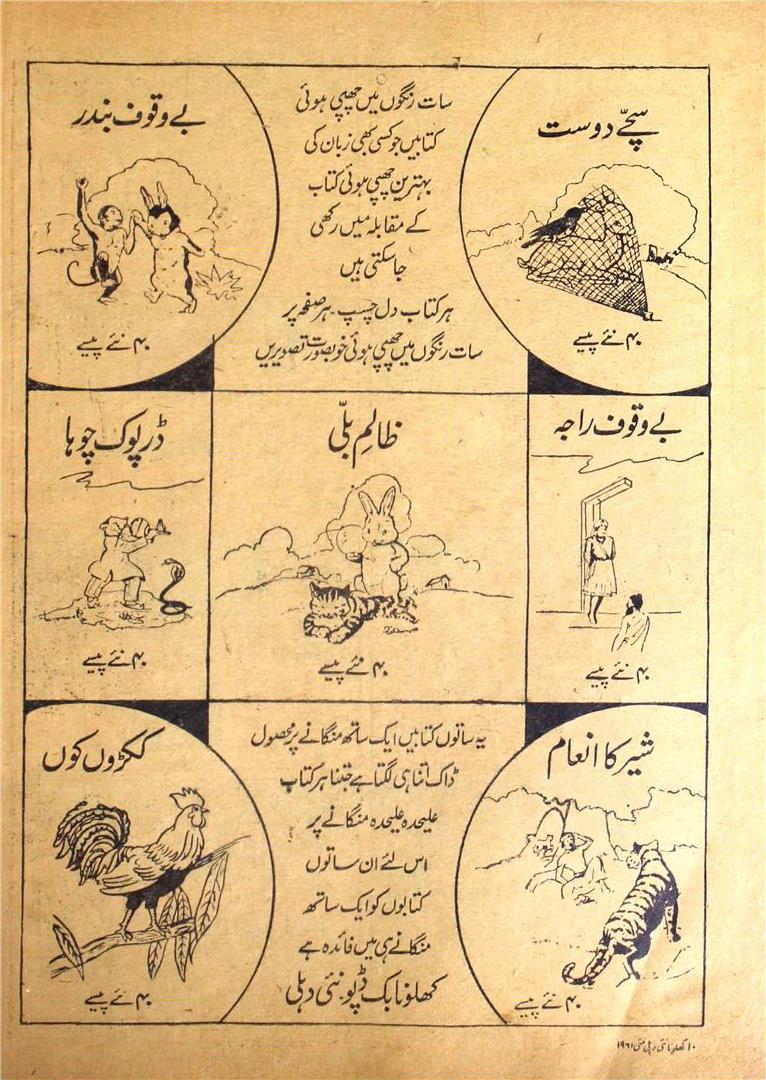 سچّے دوست
۴۰ نئے پیسے
سات رنگوں میں چھپی ہوئی
کتابیں جو کسی بھی زبان کی
بہترین چھپی ہوئی کتاب
کے مقابلہ میں رکھی
جاسکتی ہیں
ہر کتاب دل چسپ ۔ ہر صفحہ پر
سات رنگوں میں چھپی ہوئی خوبصورت تصویریں
بے وقوف بندر
۴۰ نئے پیسے
بے وقوف راجہ
۴۰ نئے پیسے
ظالم بلّی
۴۰ نئے پیسے
ڈرپوک چوہا
۴۰ نئے پیسے
شیر کا انعام
۴۰ نئے پیسے
یہ ساتوں کتابیں ایک ساتھ منگانے پر محصول
ڈاک اتنا ہی لگتا ہے جتنا ہر کتاب
علیحدہ علیحدہ منگانے پر
اس لئے ان ساتوں
کتابوں کو ایک ساتھ
منگانے ہی میں فائدہ ہے
کھلونا بک ڈپو ۔ نئی دہلی
ککڑوں کوں
۴۰ نئے پیسے
۱۰ کھلونا نئی دہلی مئی ۱۹۶۱